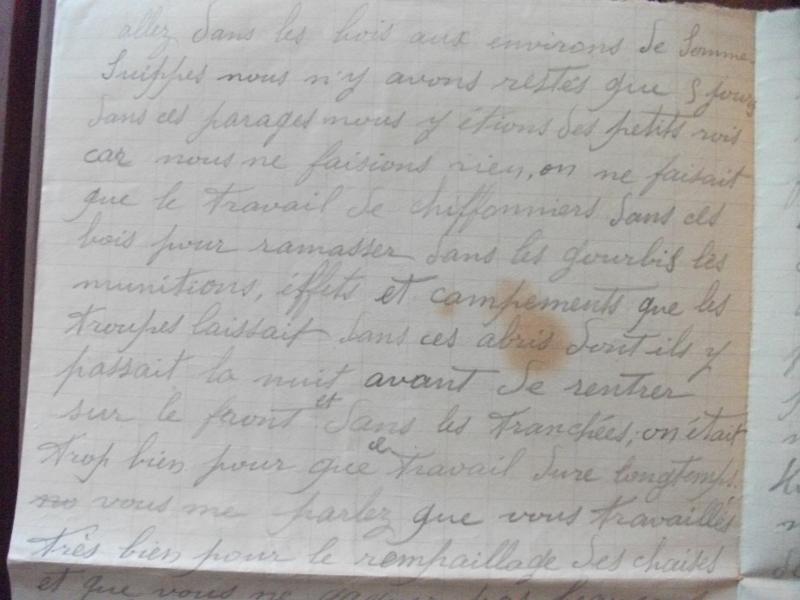 allez dans les bois aux environs de Somme-
Suippes nous n'y avons restés que 5 jours
dans ces parages nous y étions des petits rois
car nous ne faisions rien, on ne faisait
que le travail de chiffonniers dans ces
bois pour ramasser dans les gourbis les
munitions, éffets et campements que les
troupes laissait dans ces abris dont ils y
passait la nuit avant de rentrer
sur le front et dans les tranchées, on était
trop bien pour que ce travail dure longtemps.
vous me parlez que vous travaillés
très bien pour le rempaillage des chaises
et que vous ne